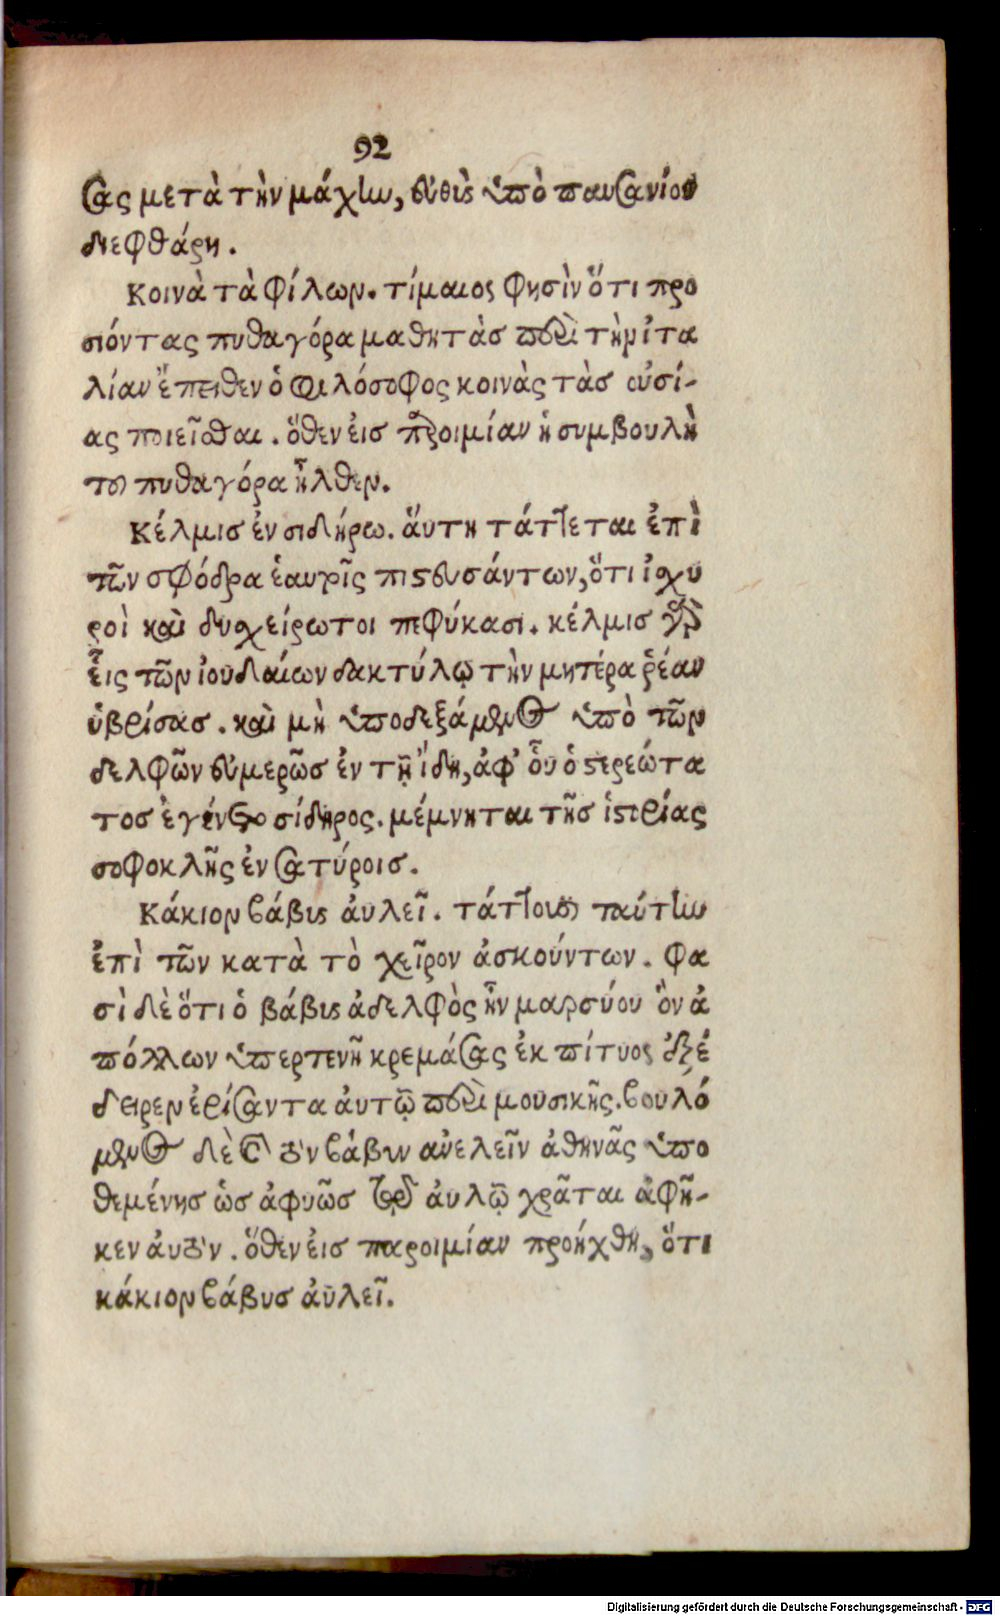 92
σας μετὰ τὴν μάχην, εὐθὺς ὑπὸ παυσανίου
διεφθάρη.
Κοινὰ τὰ φίλων. τίμαιος φησὶν ὅτι προ
σιόντας πυθαγόρα μαθητὰσ περὶ τὴν ἰτα
λίαν ἔπειθεν ὁ φιλόσοφος κοινὰς τὰσ οὐσί-
ας ποιεῖσθαι. ὅθεν ἐισ παροιμίαν ἡ συμβουλὴ
του πυθαγόρα ἦλθεν.
Κέλμισ ἐν σιδήρω. ἅυτη τάττεται ἐπὶ
τῶν σφόδρα ἑαυτοῖς πιστευσάντων, ὅτι ἰσχυ
ροὶ καὶ δυσχείρωτοι πεφύκασι. κέλμισ γὰρ
εἷις τῶν ἰουδαίων δακτύλῳ τὴν μητέρα ῥέαν
ὑβρίσασ. καὶ μὴ ὑποδεξάμενος ὑπὸ τῶν
δελφῶν εὐμερῶσ ἐν τῇ ἴδη, ἀφ' οὗ ὁ στερεώτα
τοσ ἐγένετο σίδηρος. μέμνηται τῆσ ἱστορίας
σοφοκλῆς ἐν σατύροισ.
Κάκιον βάβυς ἀυλεῖ. τάττουσι ταύτην
ἐπὶ τῶν κατὰ τὸ χεῖρον ἀσκούντων. φα
σὶ δὲ ὅτι ὁ βάβυς ἀδελφὸς ἦν μαρσύου ὃν ἀ
πόλλων ὑπερτενῆ κρεμάσας ἐκ πίτυος ἐξέ
δειρεν ἐρίσαντα ἀυτῷ περὶ μουσικῆς. βουλό
μενος δὲ καὶ τὸν βάβυν ανελεῖν ἀθηνᾶς ὑπο
θεμένησ ὡσ ἀφυῶσ τῷ ἀυλῷ χρᾶται ἀφῆ-
κεν ἀυτὸν. ὅθεν ἐισ παροιμίαν προήχθη, ὅτι
κάκιον βάβυσ ἀυλεῖ.
Digitalisierung gefördert durch die Deutsche Forschungsgemeinschaft - DFG